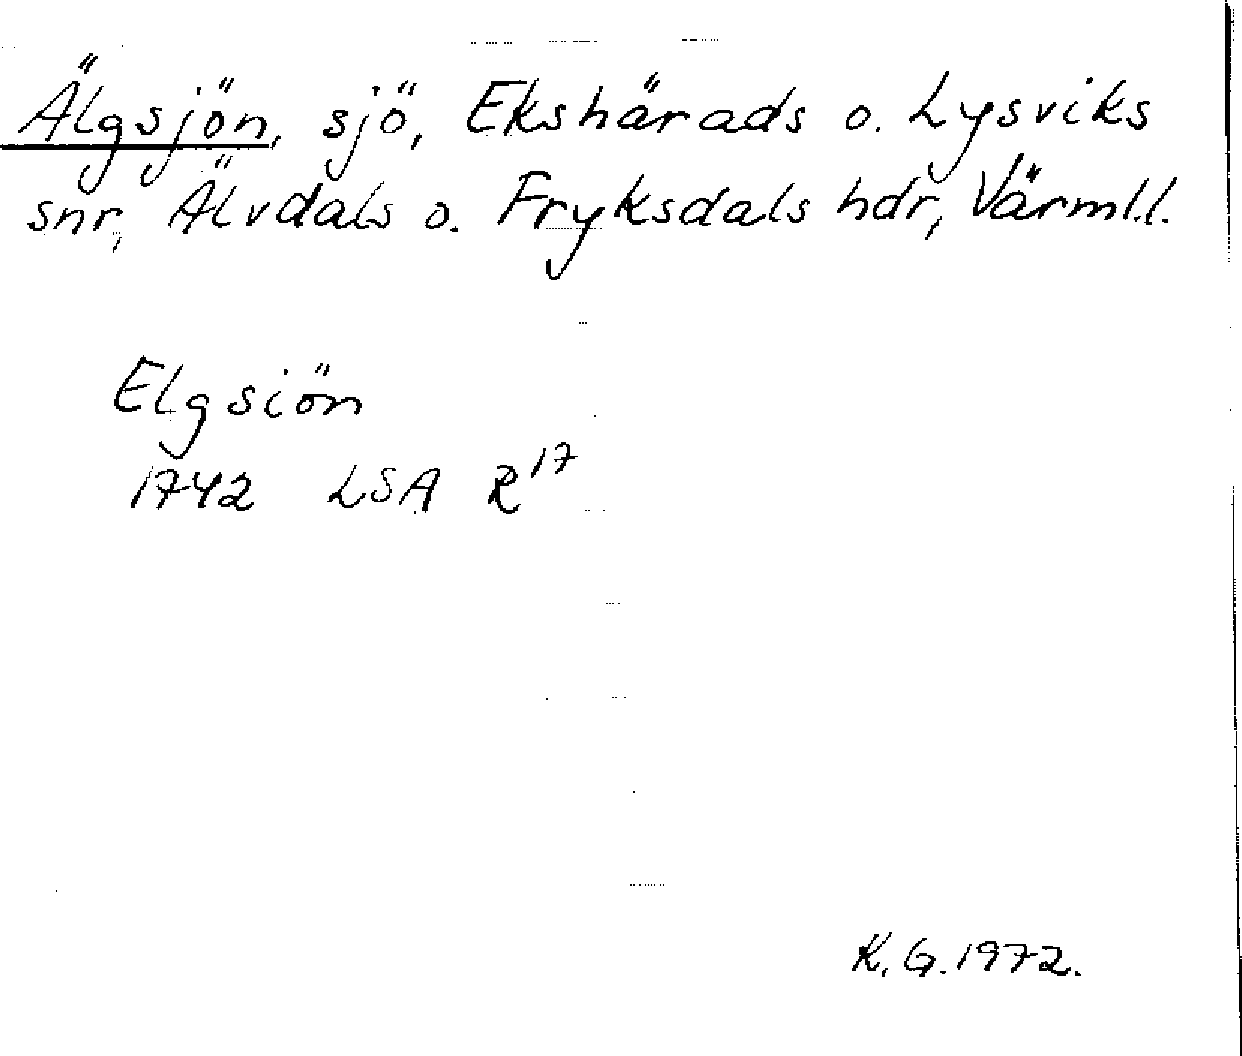 Älgsjön, sjö, Ekshärads o. Lysviks
snr, Älvdals o. Fryksdals hdr, Värml.l.
Elgsiön
1742 LSA R¹⁷
K.G.1972.